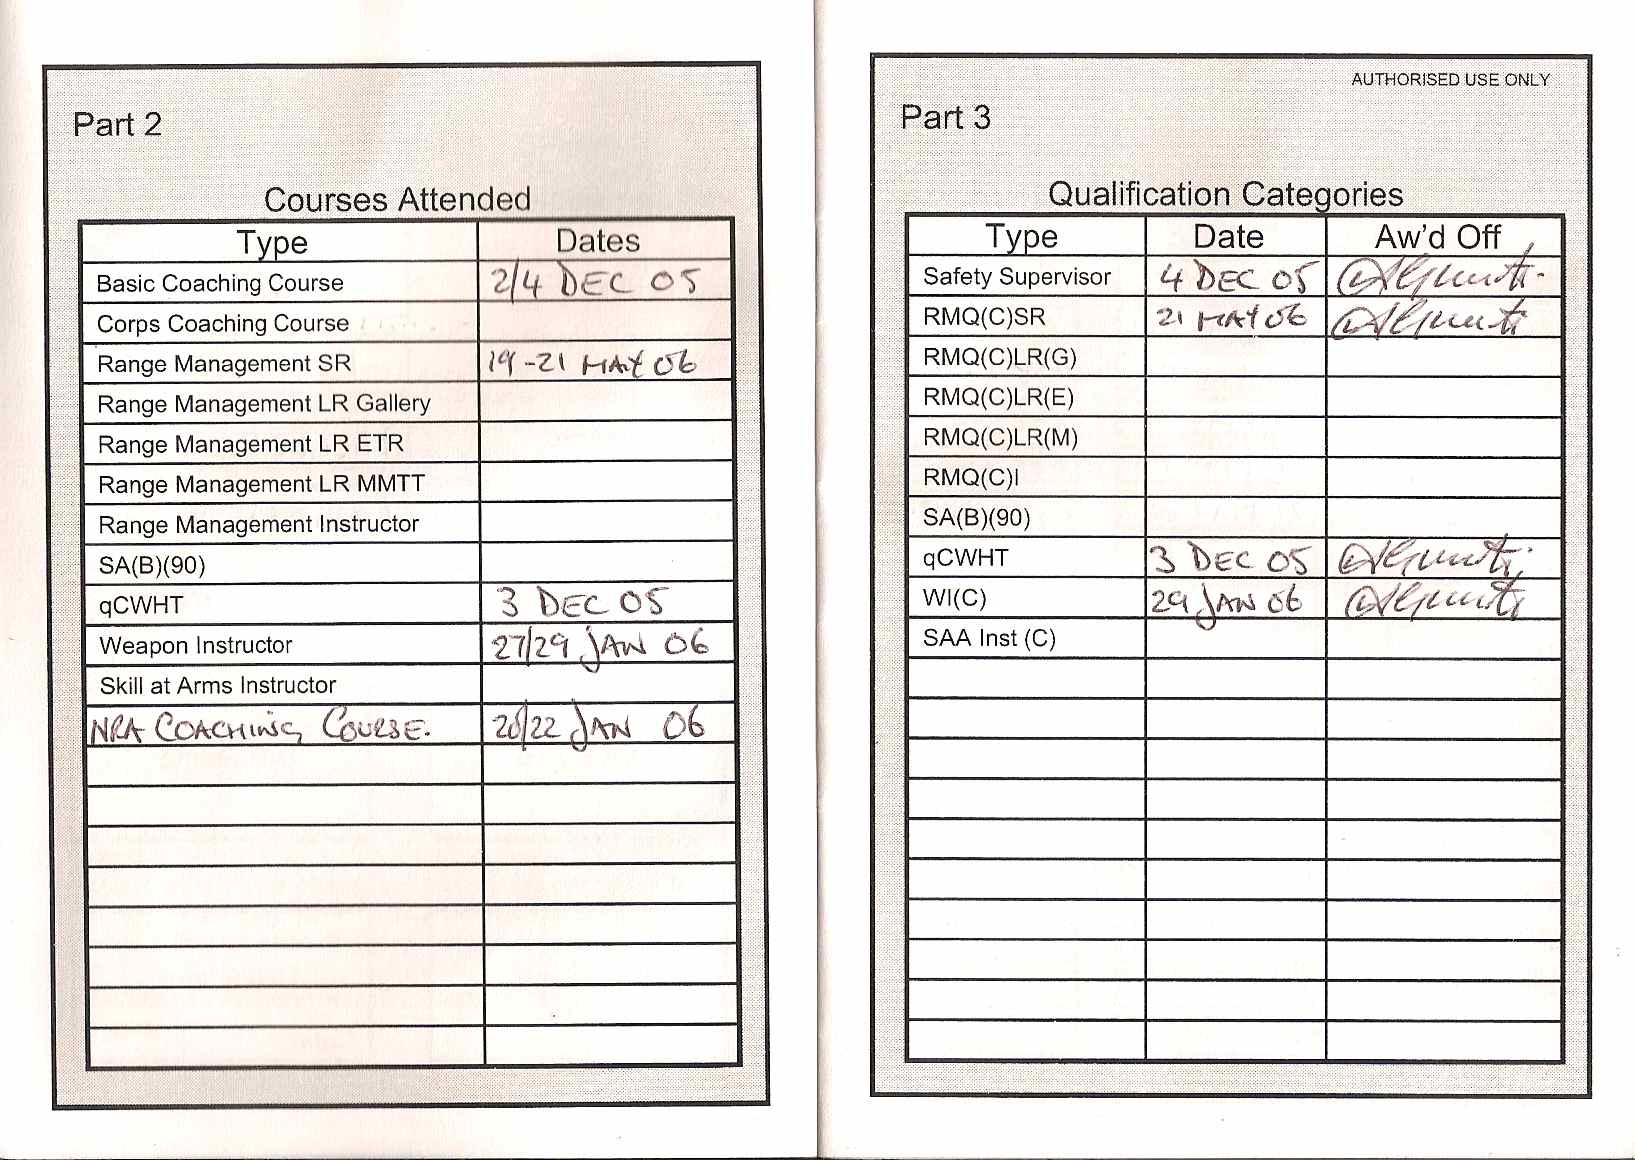 Part 2
Courses Attended
Type Dates
Basic Coaching Course 2/4 DEC 05
Corps Coaching Course
Range Management SR 19-21 MAY 06
Range Management LR Gallery
Range Management LR ETR
Range Management LR MMTT
Range Management Instructor
SA(B)(90)
qCWHT 3 DEC 05
Weapon Instructor 27/29 JAN 06
Skill at Arms Instructor
NRA COACHING COURSE. 20/22 JAN 06
AUTHORISED USE ONLY
Part 3
Qualification Categories
Type Date Aw'd Off
Safety Supervisor 4 DEC 05
RMQ(C)SR 21 MAY 06
RMQ(C)LR(G)
RMQ(C)LR(E)
RMQ(C)LR(M)
RMQ(C)I
SA(B)(90)
qCWHT 3 DEC 05
WI(C) 29 JAN 06
SAA Inst (C)